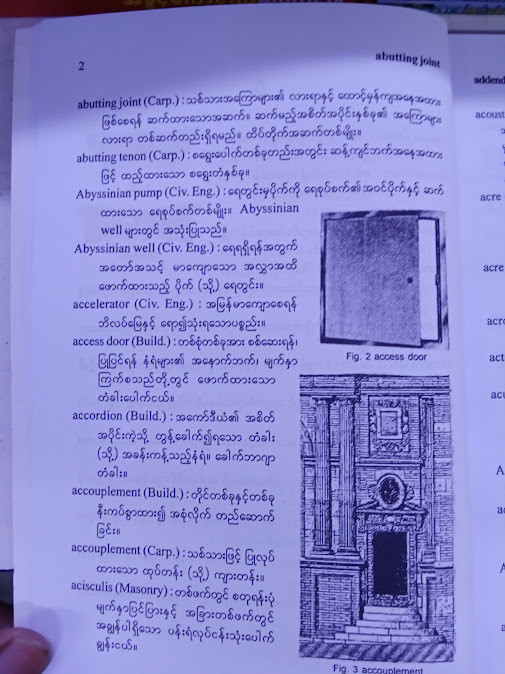 2
abutting joint
abutting joint (Carp.) : သစ်သားအကြောများ၏ လားရာနှင့် ထောင့်မှန်ကျအနေအထား
ဖြစ်စေရန် ဆက်ထားသောအဆက်။ ဆက်မည့်အစိတ်အပိုင်းနှစ်ခု၏ အကြောများ
လားရာ တစ်ဆက်တည်းရှိရမည်။ ထိပ်တိုက်အဆက်တစ်မျိုး။
abutting tenon (Carp.) : စရွေးပေါက်တစ်ခုတည်းအတွင်း ဆန့်ကျင်ဘက်အနေအထား
ဖြင့် ထည့်ထားသော စရွေးတံနှစ်ခု။
Abyssinian pump (Civ. Eng.) : ရေတွင်းမှပိုက်ကို ရေစုပ်စက်၏အဝင်ပိုက်နှင့် ဆက်
ထားသော ရေစုပ်စက်တစ်မျိုး။ Abyssinian
well များတွင် အသုံးပြုသည်။
Abyssinian well (Civ. Eng.) : ရေရရှိရန်အတွက်
အတော်အသင့် မာကျောသော အလွှာအထိ
ဖောက်ထားသည့် ပိုက် (သို့) ရေတွင်း။
accelerator (Civ. Eng.) : အမြန်မာကျောစေရန်
ဘိလပ်မြေနှင့် ရော၍သုံးရသောပစ္စည်း။
access door (Build.) : တစ်စုံတစ်ခုအား စစ်ဆေးရန်၊
ပြုပြင်ရန် နံရံများ၏ အနောက်ဘက်၊ မျက်နှာ
ကြက်စသည်တို့တွင် ဖောက်ထားသော
တံခါးပေါက်ငယ်။
Fig. 2 access door
accordion (Build.) : အကော်ဒီယံ၏ အစိတ်
အပိုင်းကဲ့သို့ တွန့်ခေါက်၍ရသော တံခါး
(သို့) အခန်းကန့်သည့်နံရံ။ ခေါက်ဘာဂျာ
တံခါး။
accouplement (Build.) : တိုင်တစ်ခုနှင့်တစ်ခု
နီးကပ်စွာထား၍ အစုံလိုက် တည်ဆောက်
ခြင်း။
accouplement (Carp.) : သစ်သားဖြင့် ပြုလုပ်
ထားသော ထုပ်တန်း (သို့) ကျားတန်း။
acisculis (Masonry) : တစ်ဖက်တွင် စတုရန်းပုံ
မျက်နှာပြင်ပြားနှင့် အခြားတစ်ဖက်တွင်
အချွန်ပါရှိသော ပန်းရံလုပ်ငန်းသုံးပေါက်
ချွန်းငယ်။
Fig. 3 accouplement
addend
acoust
acre
acre
acr
act